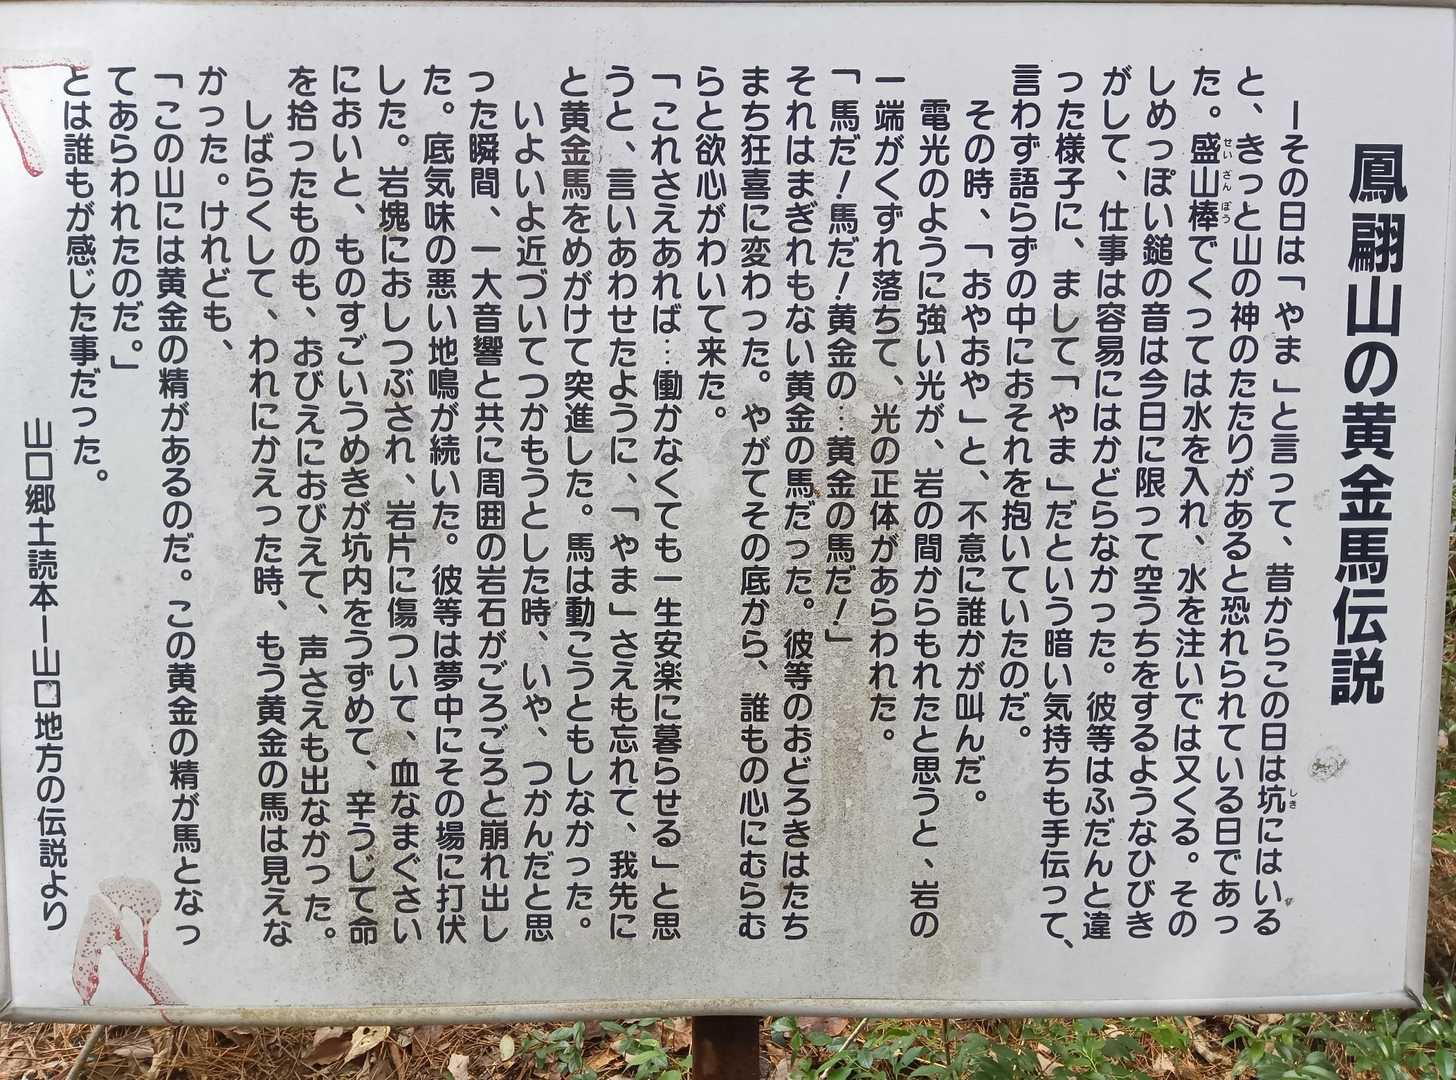 鳳翩山の黄金馬伝説
ーその日は「やま」と言って、昔からこの日は坑にはいる
しき
と、きっと山の神のたたりがあると恐れられている日であっ
た。盛山棒でくっては水を入れ、水を注いでは又くる。その
せいざんぼう
しめっぽい鎚の音は今日に限って空うちをするようなひびき
がして、仕事は容易にはかどらなかった。彼等はふだんと違
った様子に、まして「やま」だという暗い気持ちも手伝って、
言わず語らずの中におそれを抱いていたのだ。
その時、「おやおや」と、不意に誰かが叫んだ。
電光のように強い光が、岩の間からもれたと思うと、岩の
一端がくずれ落ちて、光の正体があらわれた。
「馬だ！馬だ！黄金の…黄金の馬だ！」
それはまぎれもない黄金の馬だった。彼等のおどろきはたち
まち狂喜に変わった。やがてその底から、誰もの心にむらむ
らと欲心がわいて来た。
「これさえあれば…働かなくても一生安楽に暮らせる」と思
うと、言いあわせたように、「やま」さえも忘れて、我先に
と黄金馬をめがけて突進した。馬は動こうともしなかった。
いよいよ近づいてつかもうとした時、いや、つかんだと思
った瞬間、一大音響と共に周囲の岩石がごろごろと崩れ出し
た。底気味の悪い地鳴が続いた。彼等は夢中にその場に打伏
した。岩塊におしつぶされ、岩片に傷ついて、血なまぐさい
においと、ものすごいうめきが坑内をうずめて、辛うじて命
を拾ったものも、おびえにおびえて、声さえも出なかった。
しばらくして、われにかえった時、もう黄金の馬は見えな
かった。けれども、
「この山には黄金の精があるのだ。この黄金の精が馬となっ
てあらわれたのだ。」
とは誰もが感じた事だった。
山口郷土読本ー山口地方の伝説より